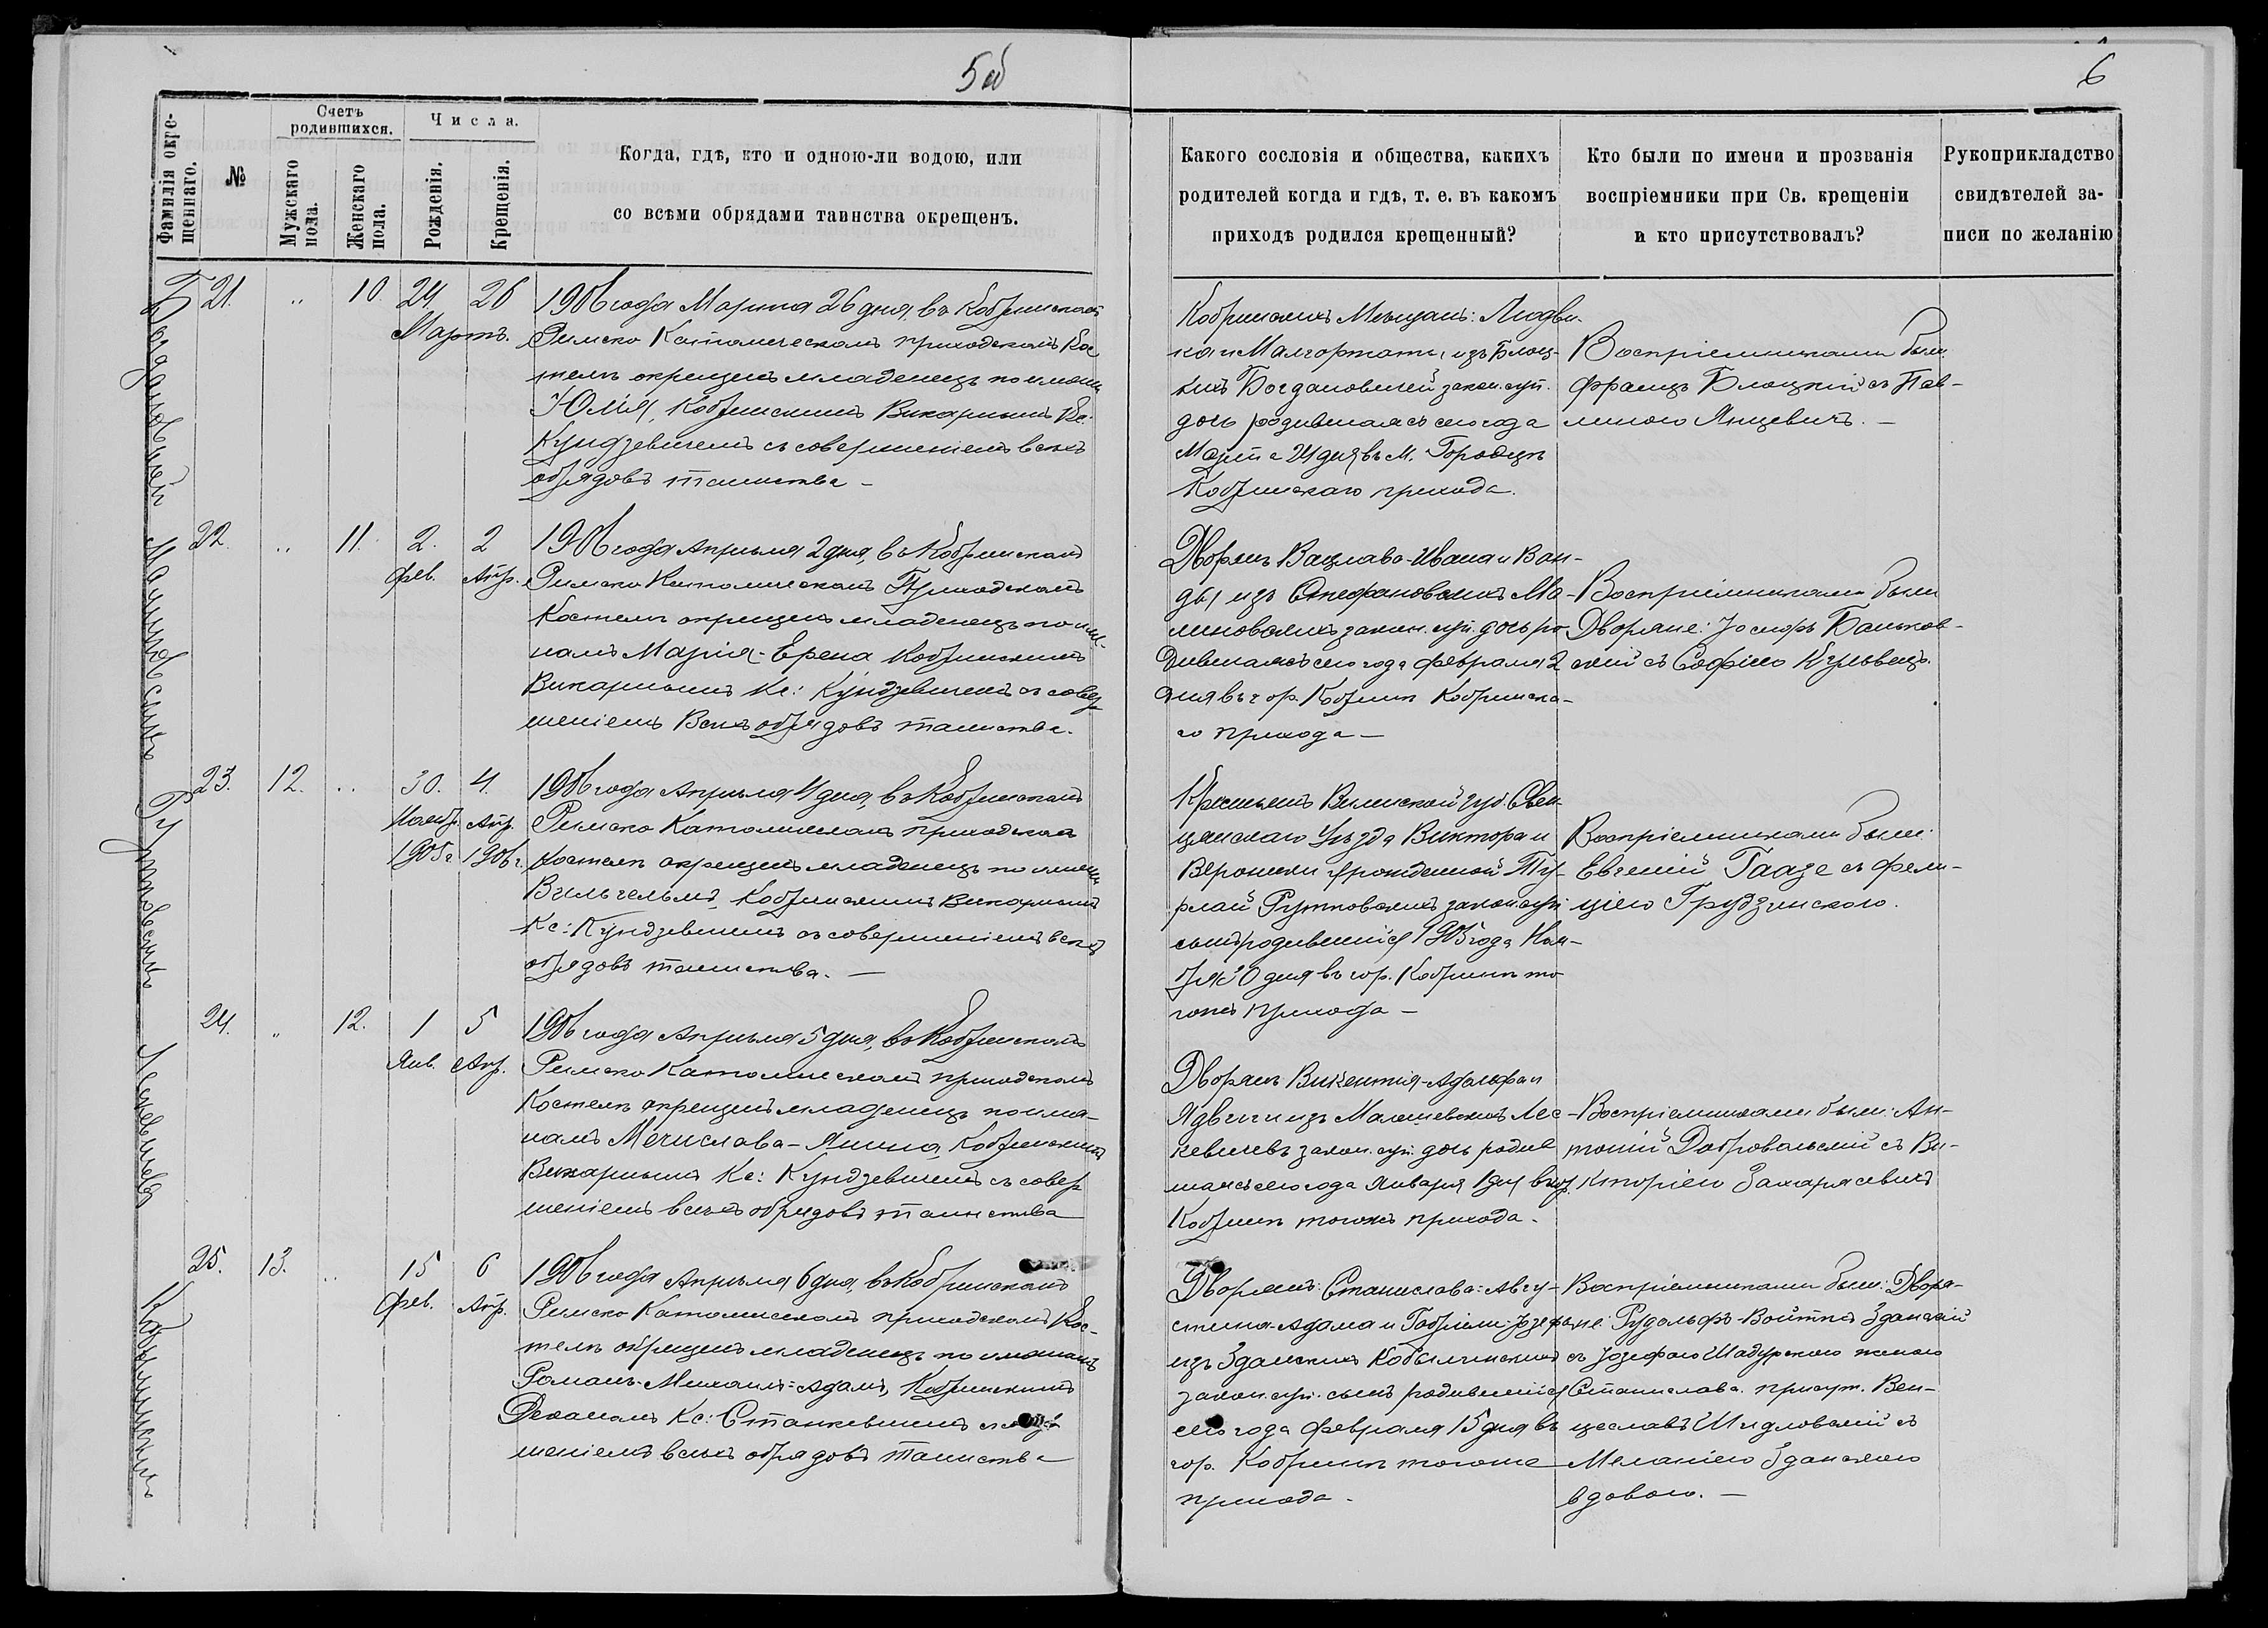 5об
6
Фамилія окре-
щеннаго.
№
Счетъ
родившихся.
Мужскаго
пола.
Женскаго
пола.
Числа.
Рожденія.
Крещенія.
Когда, гдѣ, кто и одною-ли водою, или
со всѣми обрядами таинства окрещенъ.
Какого сословія и общества, какихъ
родителей когда и гдѣ, т. е. въ какомъ
приходѣ родился крещенный?
Кто были по имени и прозванія
воспріемники при Св. крещеніи
и кто присутствовалъ?
Рукоприкладство
свидѣтелей за-
писи по желанію
21.
„
10.
24
26
Мартъ.
1906 года Марта 26 дня, въ Кобринскомъ
Римско Католическомъ приходскомъ Кос
телѣ окрещенъ младенецъ по имени
Юлія, Кобринскимъ Викарнымъ Кс.
Кундзевичемъ съ совершеніемъ всѣхъ
обрядовъ таинства –
Кобринскихъ Мѣщанъ: Людви-
ка и Малгоржаты, изъ Блоц-
кихъ Богдановичей закон. суп.
дочь родившаяся сего года
Марта 24 дня въ М. Городцѣ
Кобринскаго прихода.
Воспріемниками были
Францъ Блоцкій съ Пав-
линою Янцевичъ. –
22.
„
11.
2.
2
Фев.
Апр.
1906 года Апрѣля 2 дня, въ Кобринскомъ
Римско Католическомъ Приходскомъ
Костелѣ окрещенъ младенецъ по име-
намъ Марія-Ерена Кобринскимъ
Викарнымъ Кс: Кундзевичемъ съ совер
шеніемъ Всѣхъ обрядовъ таинства.
Дворянъ Вацлава-Ивана и Ван-
ды изъ Стефановскихъ Ма-
линовскихъ закон. суп. дочь ро-
дившаяся сего года Февраля 2
дня въ гор. Кобринѣ Кобринска-
го прихода –
Воспріемниками были
Дворяне: Іосифъ Баньков-
скій съ Софіею Кульвецъ.
23.
12.
„
30.
4.
Ноябр.
Апр.
1905 г.
1906 г.
1906 года Апрѣля 4 дня, въ Кобринскомъ
Римско Католическомъ приходскомъ
Костелѣ окрещенъ младенецъ по имени
Вильгельмъ, Кобринскимъ Викарнымъ
Кс: Кундзевичемъ съ совершеніемъ всѣхъ
обрядовъ таинства. –
Крестьянъ Виленской губ. Свен-
цянскаго Уѣзда Виктора и
Вероники урожденной
Рутковскихъ закон. суп.
сынъ родившійся 1905 года Ноя-
бря 30 дня въ гор. Кобринѣ то-
гожъ прихода –
Воспріемниками были:
Евгеній Гаазе съ Фели-
ціею Грудзинскою.
24.
„
12.
1
5
Янв.
Апр.
1906 года Апрѣля 5 дня, въ Кобринскомъ
Римско Католическомъ приходскомъ
Костелѣ окрещенъ младенецъ по име-
намъ Мечислава-Янина, Кобринскимъ
Викарнымъ Кс: Кундзевичемъ съ совер
шеніемъ всѣхъ обрядовъ таинства
Дворянъ Викентія-Адольфа и
Ядвиги изъ Малешевскихъ Лес-
кевичевъ закон. суп. дочь родив
шаяся сего года Января 1 дня въ гор.
Кобринѣ тогожъ прихода.
Воспріемниками были: Ан-
тоній Добровольскій съ Ви-
кторіею Захарясевичъ
25.
13.
„
15
6
Фев.
Апр.
1906 года Апрѣля 6 дня, въ Кобринскомъ
Римско Католическомъ приходскомъ Кос-
телѣ окрещенъ младенецъ по именамъ
Романъ-Михаилъ-Адамъ, Кобринскимъ
Деканомъ Кс: Станкевичемъ
шеніемъ всѣхъ обрядовъ таинства
Дворянъ: Станислава-Авгу-
стина-Адама и Габріели-Іозефы
изъ Зданскихъ Кобылинскихъ
закон. суп. сынъ родившійся
сего года Февраля 15 дня въ
гор. Кобринѣ тогоже
прихода.
Воспріемниками были: Дворя-
не: Рудольфъ-Войтѣхъ Зданскій
съ Іозефою Шадурскою женою
Станислава. присут. Вен-
цеславъ Шидловскій съ
Меланіею Зданскою
вдовою. –
Богдановичъ
Малиновскихъ
Рутковскихъ
Лескевичевъ
Кобылинскихъ